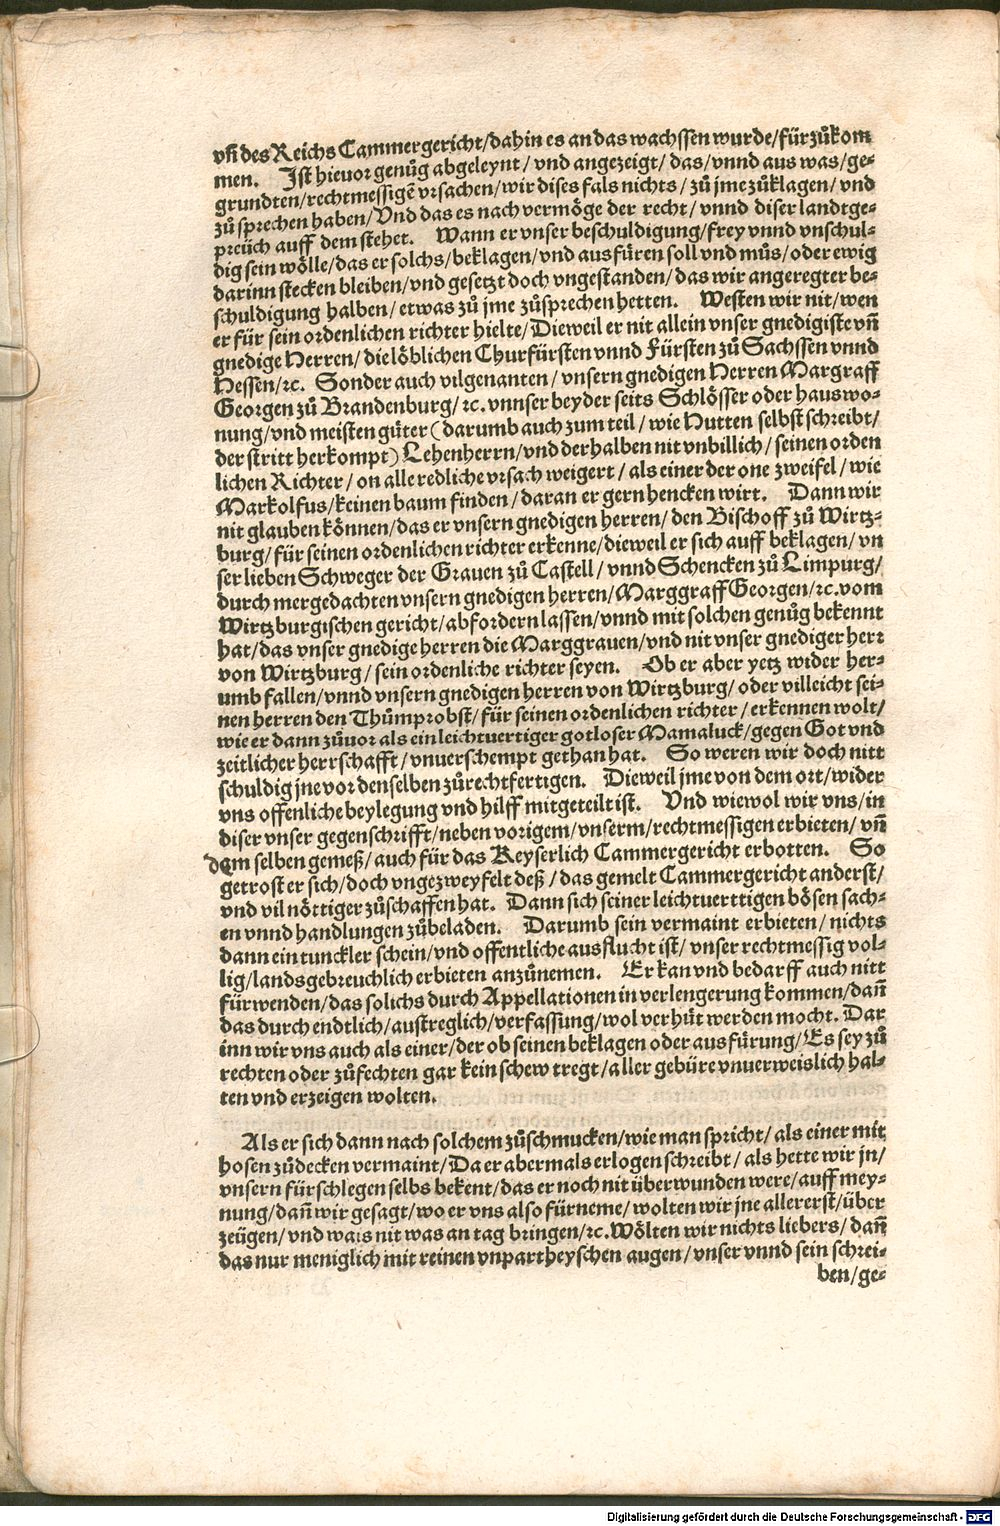 vñ des Reichs Cammergericht/dahin es an das wachssen wurde/fürzůkom
men.   Ist hieuor genůg abgeleynt/ vnd angezeigt/ das/vnnd aus was/ge⸗
grundten/rechtmessigẽ vrsachen/wir dises fals nichts/ zů jme zůklagen/ vnd
zů sprechen haben/Vnd das es nach vermöge der recht/ vnnd diser landtge⸗
preüch auff dem stehet.   Wann er vnser beschuldigung/frey vnnd vnschul⸗
dig sein wölle/das er solchs/beklagen/vnd ausfüren soll vnd můs/oder ewig
darinn stecken bleiben/vnd gesetzt doch vngestanden/das wir angeregter be⸗
schuldigung halben/etwas zů jme zůsprechen hetten.   Westen wir nit/wen
er für sein ordenlichen richter hielte/Dieweil er nit allein vnser gnedigiste vñ
gnedige Herren/die löblichen Churfürsten vnnd Fürsten zů Sachssen vnnd
Hessen/ꝛc. Sonder auch vilgenanten/ vnsern gnedigen Herren Margraff
Georgen zů Brandenburg/ ꝛc. vnnser beyder seits Schlösser oder hauswo⸗
nung/vnd meisten güter (darumb auch zum teil/ wie Hutten selbst schreibt/
der stritt herkompt) Lehenherrn/vnd derhalben nit vnbillich/ seinen orden
lichen Richter/ on alle redliche vrsach weigert/ als einer der one zweifel/ wie
Markolfus/keinen baum finden/daran er gern hencken wirt.   Dann wir
nit glauben können/das er vnsern gnedigen herren/ den Bischoff zů Wirtz⸗
burg/für seinen ordenlichen richter erkenne/dieweil er sich auff beklagen/ vn
ser lieben Schweger der Grauen zů Castell/ vnnd Schencken zů Limpurg/
durch mergedachten vnsern gnedigen herren/Marggraff Georgen/ꝛc.vom
Wirtzburgischen gericht/abfordern lassen/vnnd mit solchen genůg bekennt
hat/das vnser gnedige herren die Marggrauen/vnd nit vnser gnediger herr
von Wirtzburg/sein ordenliche richter seyen.   Ob er aber yetz wider her⸗
umb fallen/vnnd vnsern gnedigen herren von Wirtzburg/oder villeicht sei⸗
nen herren den Thůmprobst/für seinen ordenlichen richter/erkennen wolt/
wie er dann zůuor als ein leichtuertiger gotloser Mamaluck/gegen Got vnd
zeitlicher herrschafft/vnuerschempt gethan hat.   So weren wir doch nitt
schuldig jne vor denselben zůrechtfertigen.   Dieweil jme von dem ort/wider
vns offenliche beylegung vnd hilff mitgeteilt ist.   Vnd wiewol wir vns/in
diser vnser gegenschrifft/neben vorigem/vnserm/rechtmessigen erbieten/ vñ
dem selben gemeß/auch für das Keyserlich Cammergericht erbotten.   So
getrost er sich/doch vngezweyfelt deß/das gemelt Cammergericht anderst/
vnd vil nöttiger zůschaffen hat. Dann sich seiner leichtuerttigen bösen sach⸗
en vnnd handlungen zůbeladen.   Darumb sein vermaint erbieten/ nichts
dann ein tunckler schein/vnd offentliche ausflucht ist/ vnser rechtmessig vol⸗
lig/landsgebreuchlich erbieten anzůnemen.   Er kan vnd bedarff auch nitt
fürwenden/das solichs durch Appellationen in verlengerung kommen/dañ
das durch endtlich/austreglich/verfassung/wol verhüt werden mocht. Dar
inn wir vns auch als einer/der ob seinen beklagen oder ausfürung/Es sey zů
rechten oder zůfechten gar kein schew tregt/aller gebüre vnuerweislich hal⸗
ten vnd erzeigen wolten.
Als er sich dann nach solchem zůschmucken/wie man spricht/als einer mit
hosen zůdecken vermaint/Da er abermals erlogen schreibt/ als hette wir jn/
vnsern fürschlegen selbs bekent/das er noch nit überwunden were/auff mey⸗
nung/dañ wir gesagt/wo er vns also fürneme/wolten wir jne allererst/über
zeügen/vnd wais nit was an tag bringen/ꝛc. Wölten wir nichts liebers/dañ
das nur meniglich mit reinen vnpartheyschen augen/vnser vnnd sein schrei⸗
ben/ge⸗
Digitalisierung gefördert durch die Deutsche Forschungsgemeinschaft - DFG